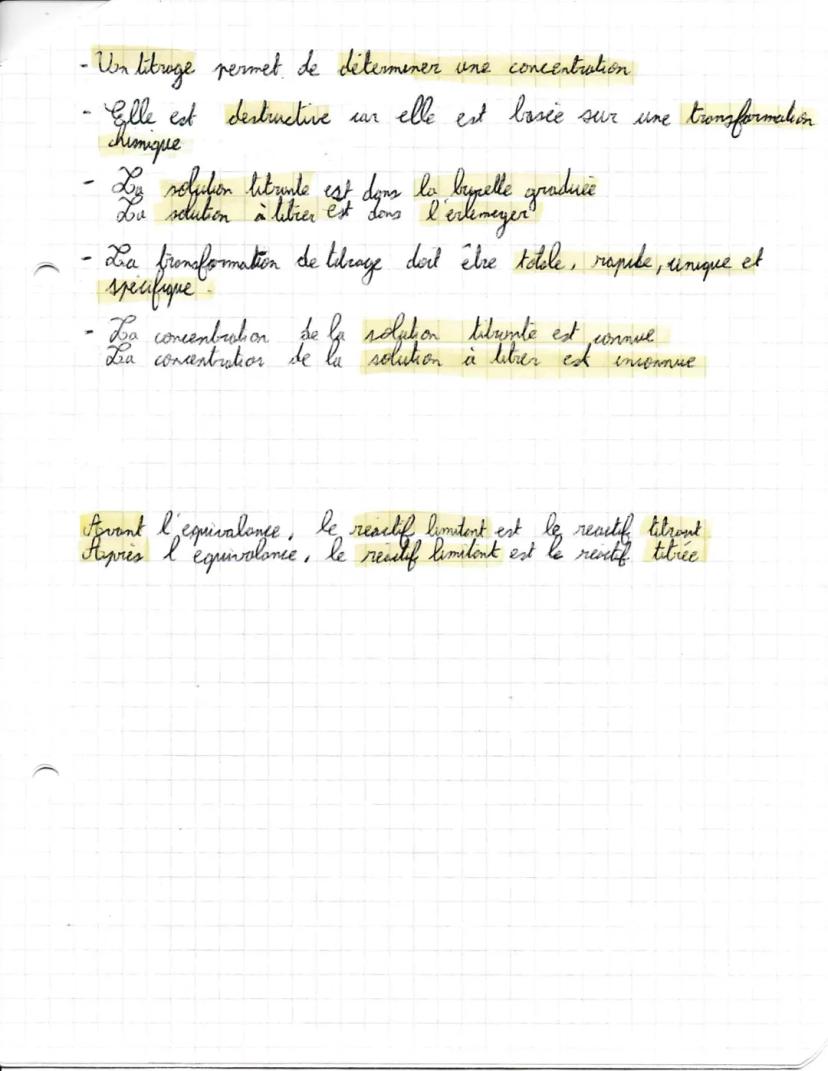 - Un titrage permet de déterminer une concentration
- Elle est destructive car elle est basée sur une transformation
chimique
- La solution titrante est dans la burette graduée
La solution à titrer est dans l'erlenmeyer
- La transformation de titrage doit être totale, rapide, unique et
spécifique.
- La concentration de la solution titrante est connue
La concentration de la solution à titrer est inconnue
Avant l'equivalance, le reactif limitant est le reactif titrant
Après l'equivalance, le reactif limitant est le reactif titrée